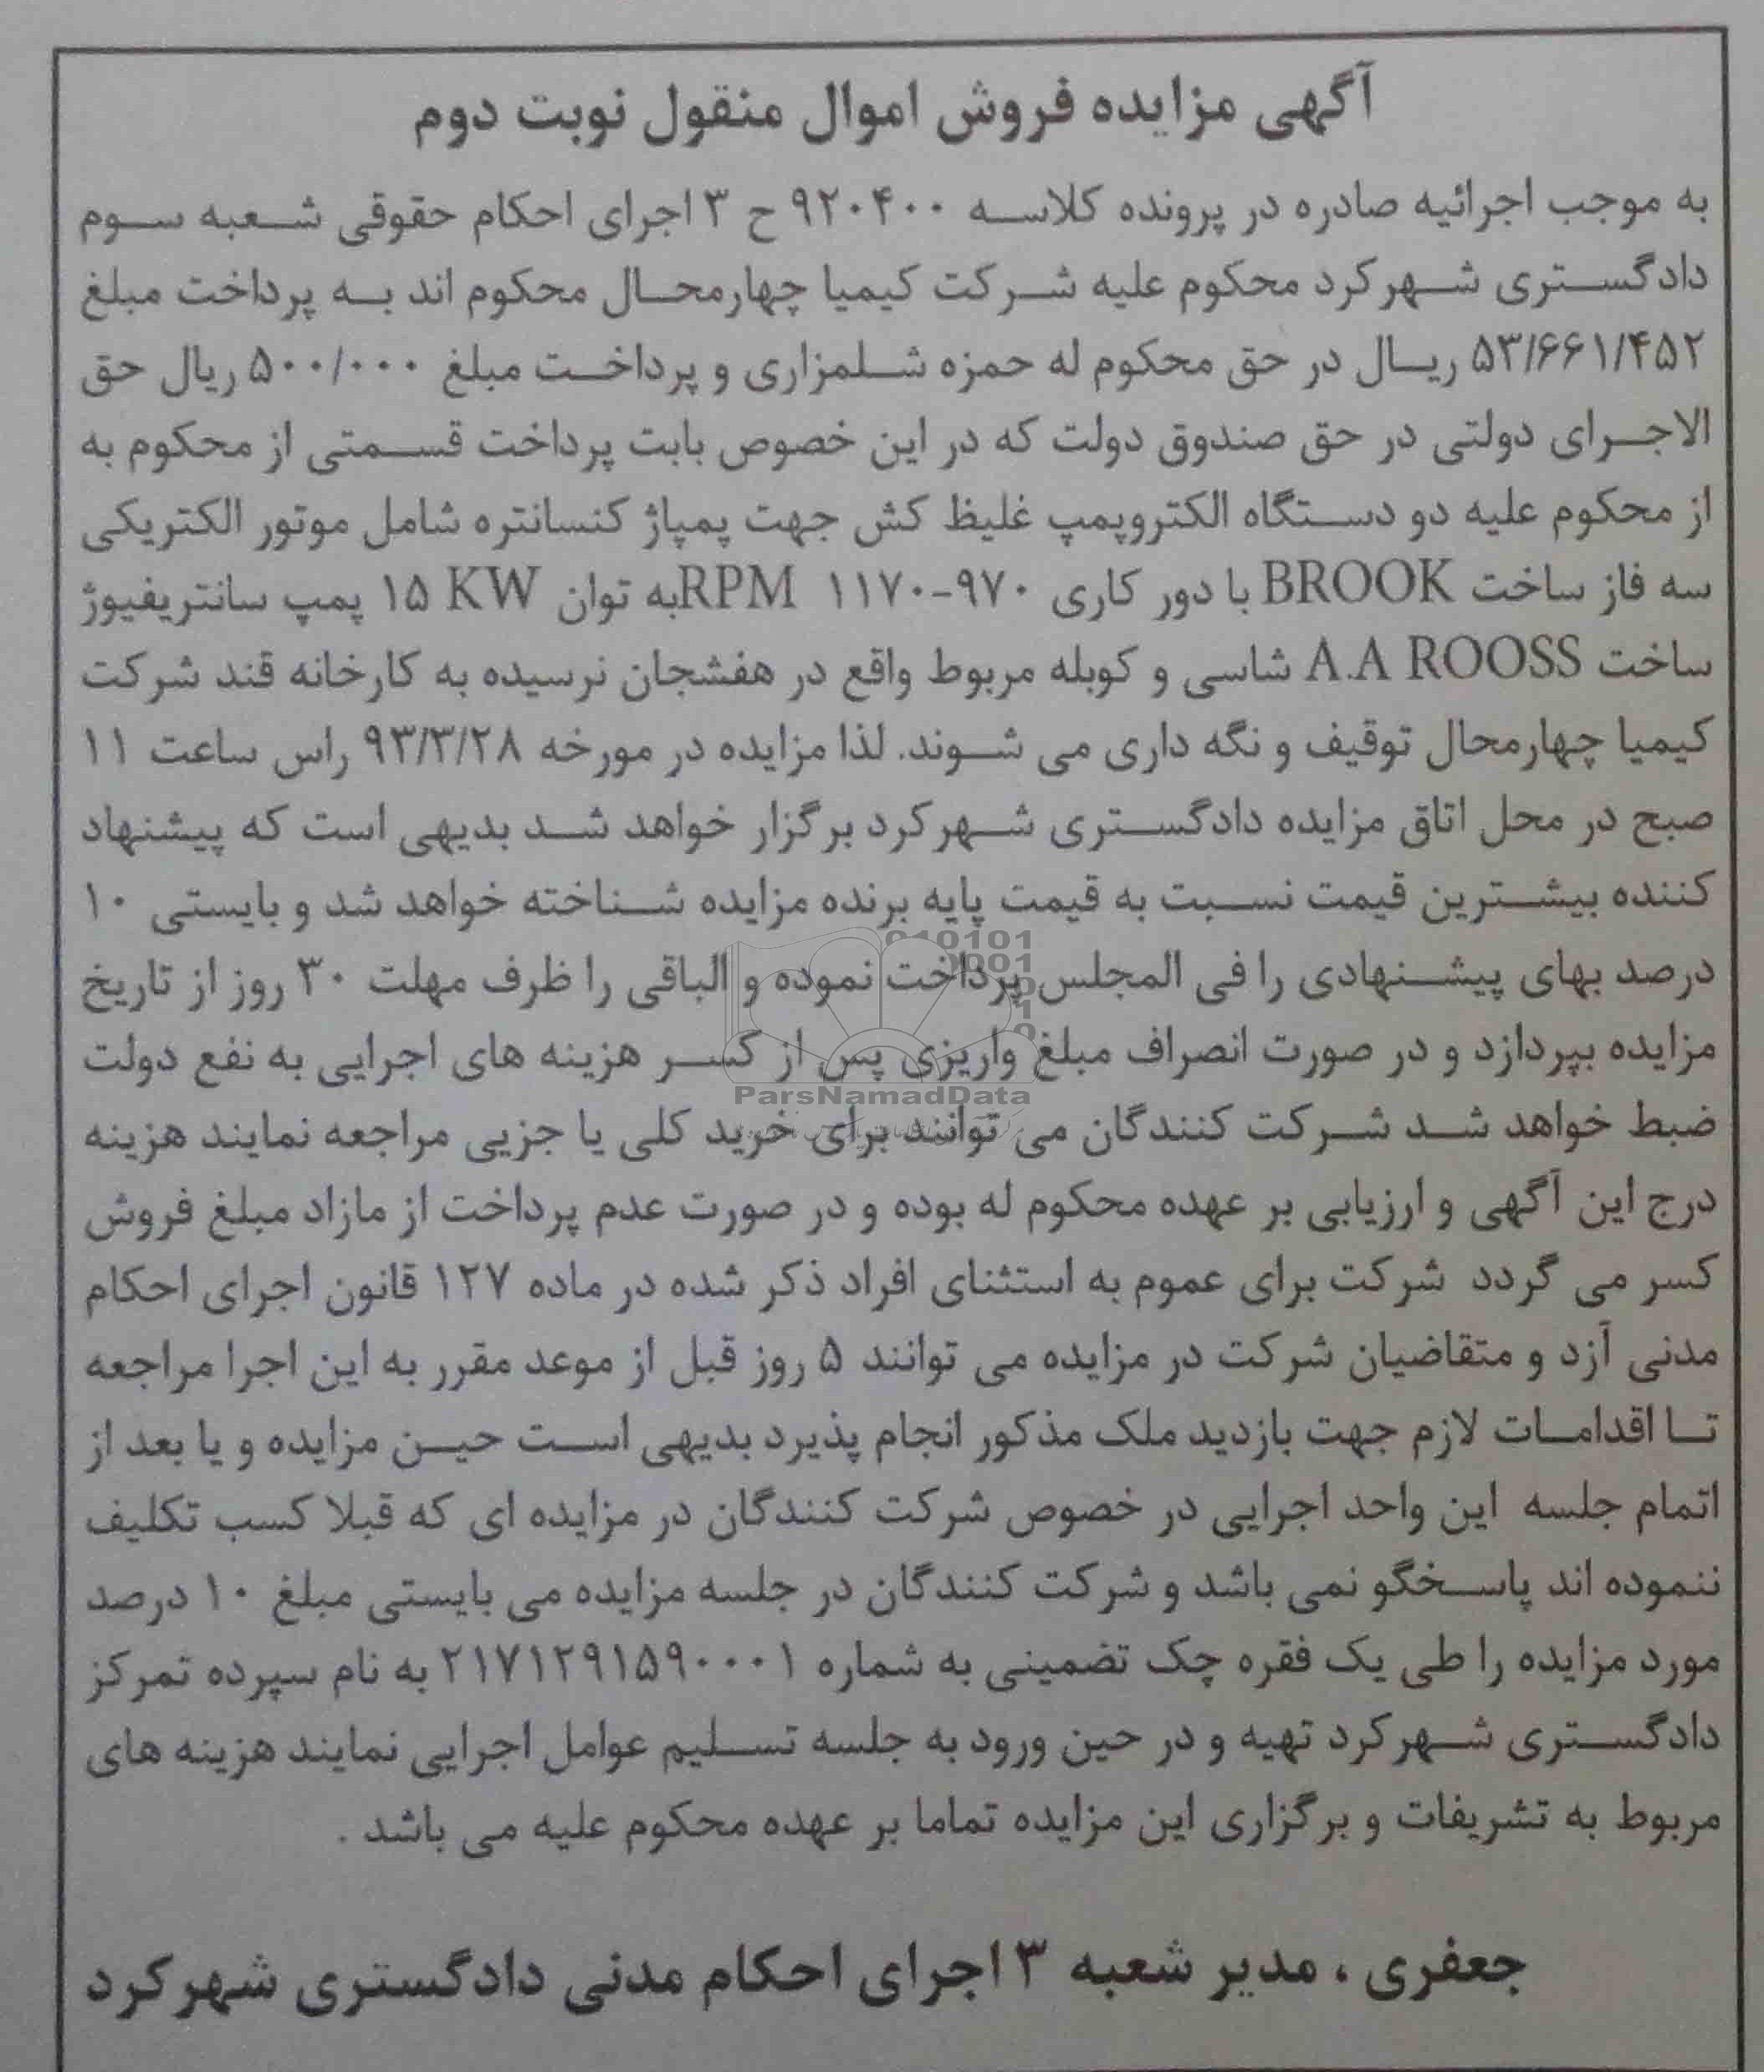 آگهی مزایده فروش اموال منقول نوبت دوم
به موجب اجرائیه صادره در پرونده کلاسه ۹۲۰۴۰۰ ح ۳ اجرای احکام حقوقی شعبه سوم
دادگستری شهرکرد محکوم علیه شرکت کیمیا چهارمحال محکوم اند به پرداخت مبلغ
۵۳/۶۶۱/۴۵۲ ریال در حق محکوم له حمزه شلمزاری و پرداخت مبلغ ۵۰۰/۰۰۰ ریال حق
الاجرای دولتی در حق صندوق دولت که در این خصوص بابت پرداخت قسمتی از محکوم به
از محکوم علیه دو دستگاه الکتروپمپ غلیظ کش جهت پمپاژ کنسانتره شامل موتور الکتریکی
سه فاز ساخت BROOK با دور کاری ۹۷۰-۱۱۷۰ RPM به توان ۱۵ KW پمپ سانتریفیوژ
ساخت A.A ROOSS شاسی و کوبله مربوط واقع در هفشجان نرسیده به کارخانه قند شرکت
کیمیا چهارمحال توقیف و نگه داری می شوند. لذا مزایده در مورخه ۹۳/۳/۲۸ راس ساعت ۱۱
صبح در محل اتاق مزایده دادگستری شهرکرد برگزار خواهد شد بدیهی است که پیشنهاد
کننده بیشترین قیمت نسبت به قیمت پایه برنده مزایده شناخته خواهد شد و بایستی ۱۰
درصد بهای پیشنهادی را فی المجلس پرداخت نموده و الباقی را ظرف مهلت ۳۰ روز از تاریخ
مزایده بپردازد و در صورت انصراف مبلغ واریزی پس از کسر هزینه های اجرایی به نفع دولت
ParsNamadData
ضبط خواهد شد شرکت کنندگان می توانند برای خرید کلی یا جزیی مراجعه نمایند هزینه
درج این آگهی و ارزیابی بر عهده محکوم له بوده و در صورت عدم پرداخت از مازاد مبلغ فروش
کسر می گردد شرکت برای عموم به استثنای افراد ذکر شده در ماده ۱۲۷ قانون اجرای احکام
مدنی آزد و متقاضیان شرکت در مزایده می توانند ۵ روز قبل از موعد مقرر به این اجرا مراجعه
تا اقدامات لازم جهت بازدید ملک مذکور انجام پذیرد بدیهی است حین مزایده و یا بعد از
اتمام جلسه این واحد اجرایی در خصوص شرکت کنندگان در مزایده ای که قبلا کسب تکلیف
ننموده اند پاسخگو نمی باشد و شرکت کنندگان در جلسه مزایده می بایستی مبلغ ۱۰ درصد
مورد مزایده را طی یک فقره چک تضمینی به شماره ۲۱۷۱۲۹۱۵۹۰۰۰۱ به نام سپرده تمرکز
دادگستری شهرکرد تهیه و در حین ورود به جلسه تسلیم عوامل اجرایی نمایند هزینه های
مربوط به تشریفات و برگزاری این مزایده تماما بر عهده محکوم علیه می باشد .
جعفری ، مدیر شعبه ۳ اجرای احکام مدنی دادگستری شهرکرد